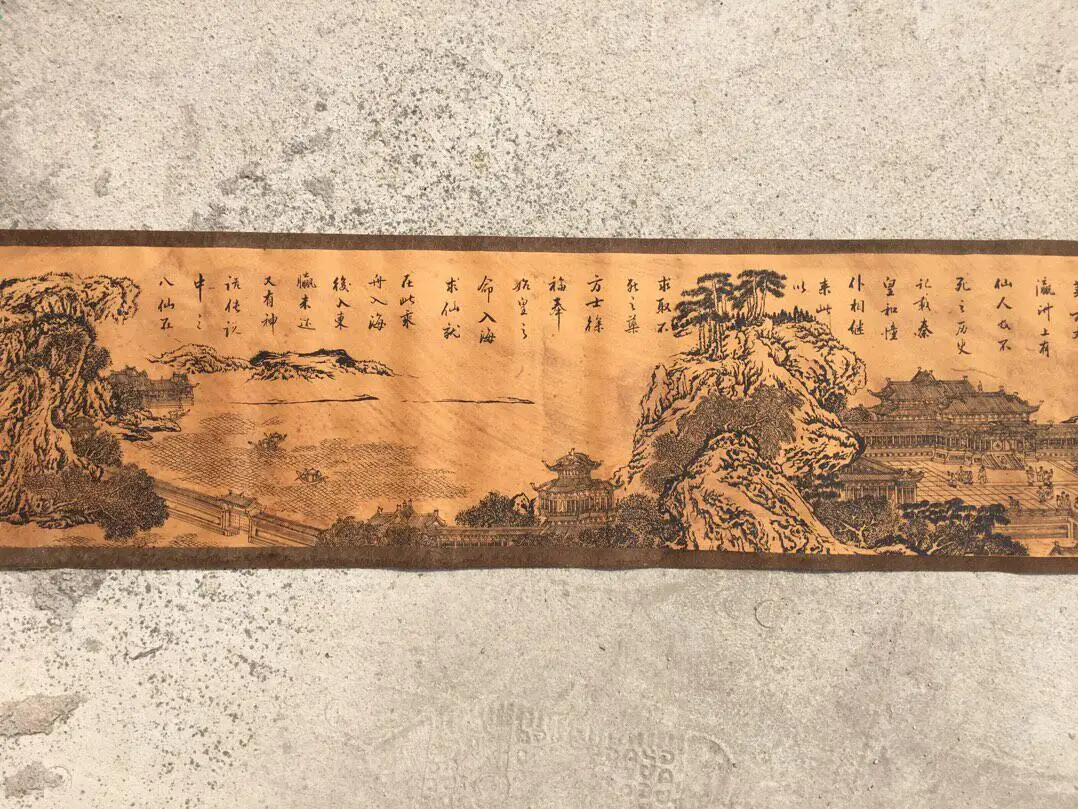 瀛洲上有
仙人不
死之历史
记载秦
皇和憧
仆相继
来此
以
求取不
死之藥
方士徐
福奉
始皇之
命入海
求仙就
在此乘
舟入海
後入東
瀛未还
又有神
话传说
中之
八仙在